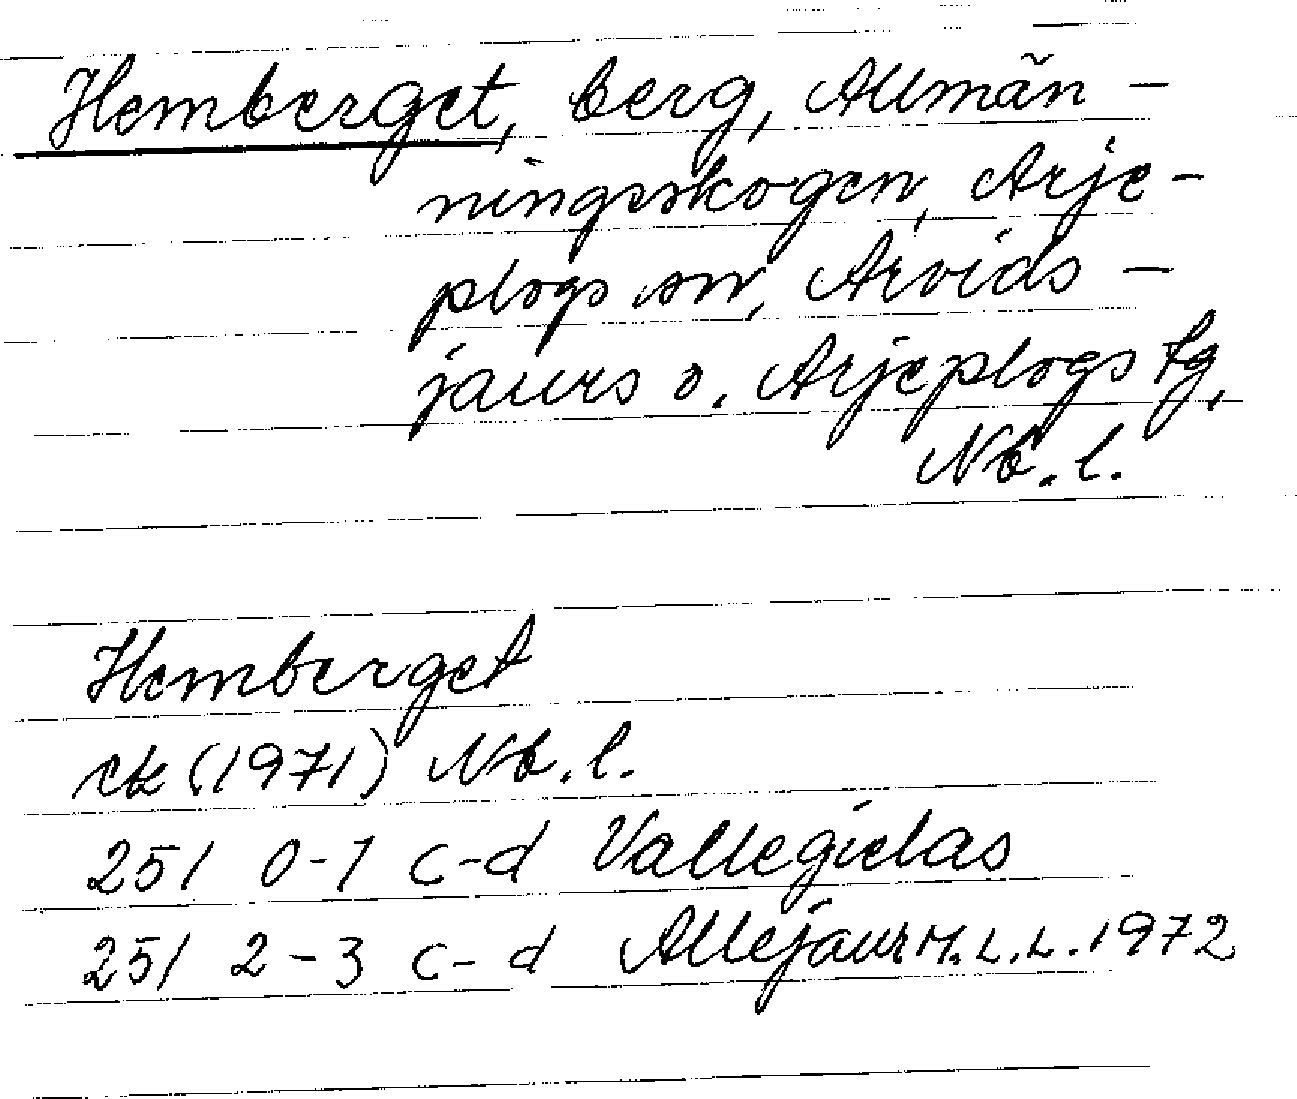 Hemberget, berg, Allmän-
ningsskogen, Arje-
plogs sn, Arvids-
jaurs o. Arjeplogs tg,
Nb. l.
Hemberget
ek (1971) Nb. l.
251 0-1 c-d Vallegielas
251 2-3 c-d Allejaur M.L.L. 1972